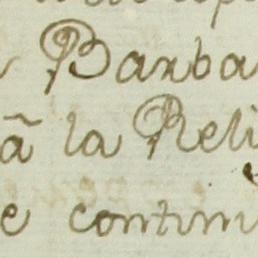 Barba
ã la Reli
e contin